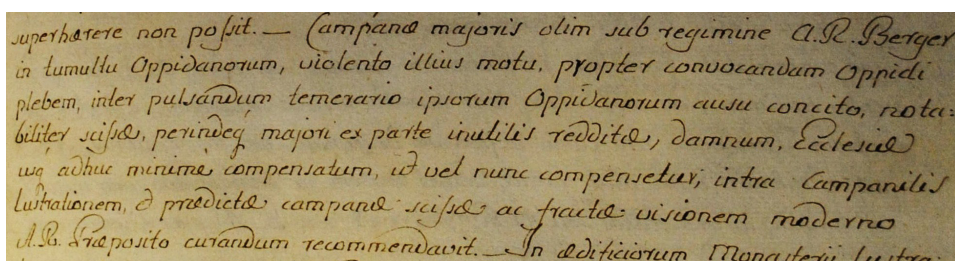 superhærere non poſsit. — Campanæ majoris olim sub regimine A. R. Berger
in tumultu Oppidanorum, violento illius motu, propter convocandam Oppidi
plebem, inter pulsandum temerario ipsorum Oppidanorum ausu concito, nota=
biliter sciſsæ, perindeq́ majori ex parte inutilis redditæ, damnum, Ecclesiæ
usq́ adhuc minime compensatum, ut vel nunc compensetur, intra Campanilis
Lustrationem, & prædictæ campanæ sciſsæ ac fractæ visionem moderno
A. R. Præposito curandum recommendavit. — In ædificiorum Monasterij Lustra-